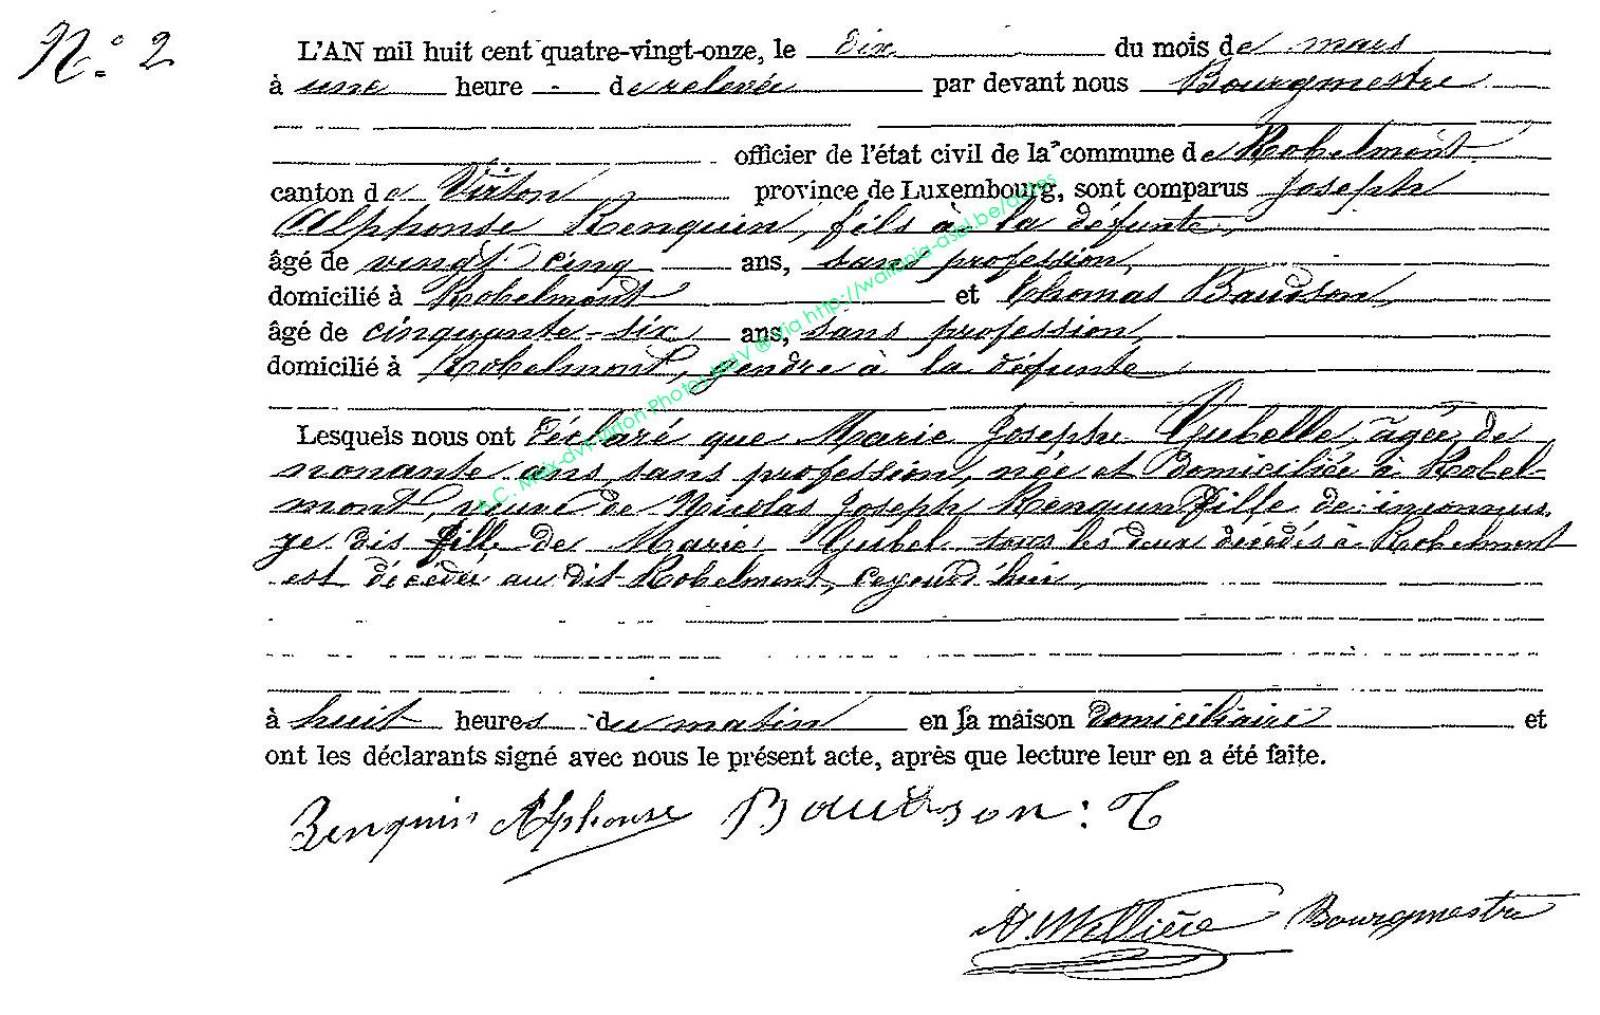 N.º 2
L'AN mil huit cent quatre-vingt-onze, le dix du mois de mars
à une heure de relevée par devant nous Bourgmestre
officier de l'état civil de la commune de Robelmont
canton de Virton, province de Luxembourg, sont comparus Joseph
Alphonse Renquin, fils à la défunte,
âgé de vingt cinq ans, sans profession,
domicilié à Robelmont et Thomas Baudson,
âgé de cinquante-six ans, sans profession,
domicilié à Robelmont, gendre à la défunte
Lesquels nous ont déclaré que Marie Joseph Gubelle, âgée de
nonante ans, sans profession, née et domiciliée à Robel-
mont, veuve de Nicolas Joseph Renquin fille de inconnus.
je dis fille de Marie Gubel tous les deux décédés à Robelmont
est décédée au dit Robelmont, cejourd'hui,
à huit heures du matin en sa maison domiciliaire et
ont les déclarants signé avec nous le présent acte, après que lecture leur en a été faite.
Renquin Alphonse Baudson: T
Bourgmestre
A.C. Meix-dvt-Virton Photos MdV ® via http://wallonia-asbl.be/actes